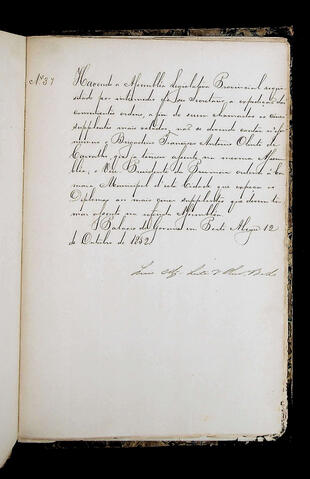 Nº 37
Havendo a Assemblea Legislativa Provincial requi-
sitado por intermedio do seu Secretario, a expedição da
conveniente ordem, a fim de serem chamados os
supplentes mais votados, não se devendo contar
o Brigadeiro Francisco Antonio Olinto de
Carvalho, já assento na mesma Assem-
blea, o Presidente da Provincia ordena á Ca-
mara Municipal d'esta Cidade que expeça os
Diplomas aos mais supplentes que devem to-
mar assento na referida Assemblea.
Palacio do Governo em Porto Alegre 12
de Outubro de 1852